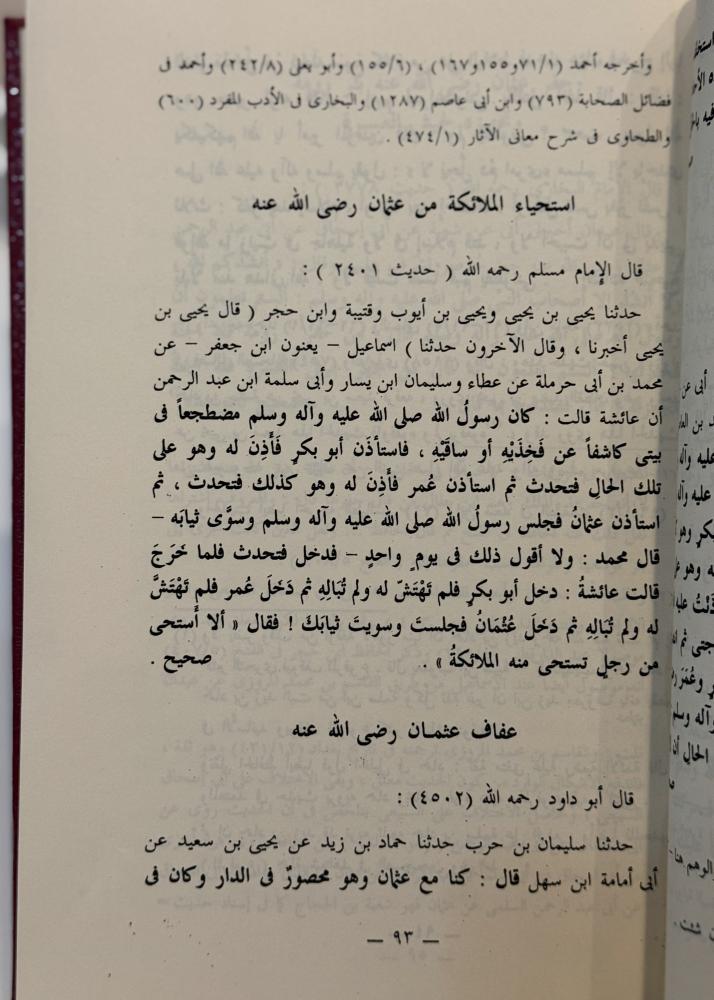 وأخرجه أحمد (٧١/١و١٥٥و١٦٧) ، (١٥٥/٦) وأبو يعلى (٢٤٢/٨) وأحمد فى
فضائل الصحابة (٧٩٣) وابن أبى عاصم (١٢٨٧) والبخارى فى الأدب المفرد (٦٠٠)
والطحاوى فى شرح معانى الآثار (٤٧٤/١) .
استحياء الملائكة من عثمان رضى الله عنه
قال الإمام مسلم رحمه الله ( حديث ٢٤٠١ ) :
حدثنا يحيى بن يحيى ويحيى بن أيوب وقتيبة وابن حجر ( قال يحيى بن
يحيى أخبرنا ، وقال الآخرون حدثنا ) اسماعيل – يعنون ابن جعفر – عن
محمد بن أبى حرملة عن عطاء وسليمان ابن يسار وأبى سلمة ابن عبد الرحمن
أن عائشة قالت : كان رسولُ الله صلى الله عليه وآله وسلم مضطجعاً فى
بيتى كاشفاً عن فَخِذَيْهِ أو ساقَيْهِ ، فاستأذَن أبو بكرٍ فَأَذِنَ له وهو على
تلك الحالِ فتحدث ثم استأذن عُمر فأَذِنَ له وهو كذلك فتحدث ، ثم
استأذن عثمانُ فجلس رسولُ الله صلى الله عليه وآله وسلم وسوَّى ثيابَه –
قال محمد : ولا أقول ذلك فى يومٍ واحدٍ – فدخل فتحدث فلما خَرَجَ
قالت عائشةُ : دخل أبو بكرٍ فلم تَهْتَشّ له ولم تُبَالِهِ ثم دَخَلَ عُمر فلم تَهْتَشَّ
له ولم تُبَالِهِ ثم دَخَلَ عُثْمَانُ فجلستَ وسويتَ ثيابَكَ ! فقال « ألا أَستحى
من رجلٍ تستحى منه الملائكةُ » . صحيح .
عفاف عثمـان رضى الله عنه
قال أبو داود رحمه الله (٤٥٠٢) :
حدثنا سليمان بن حرب حدثنا حماد بن زيد عن يحيى بن سعيد عن
أبى أمامة ابن سهل قال : كنا مع عثمان وهو محصورٌ فى الدار وكان فى
— ٩٣ —